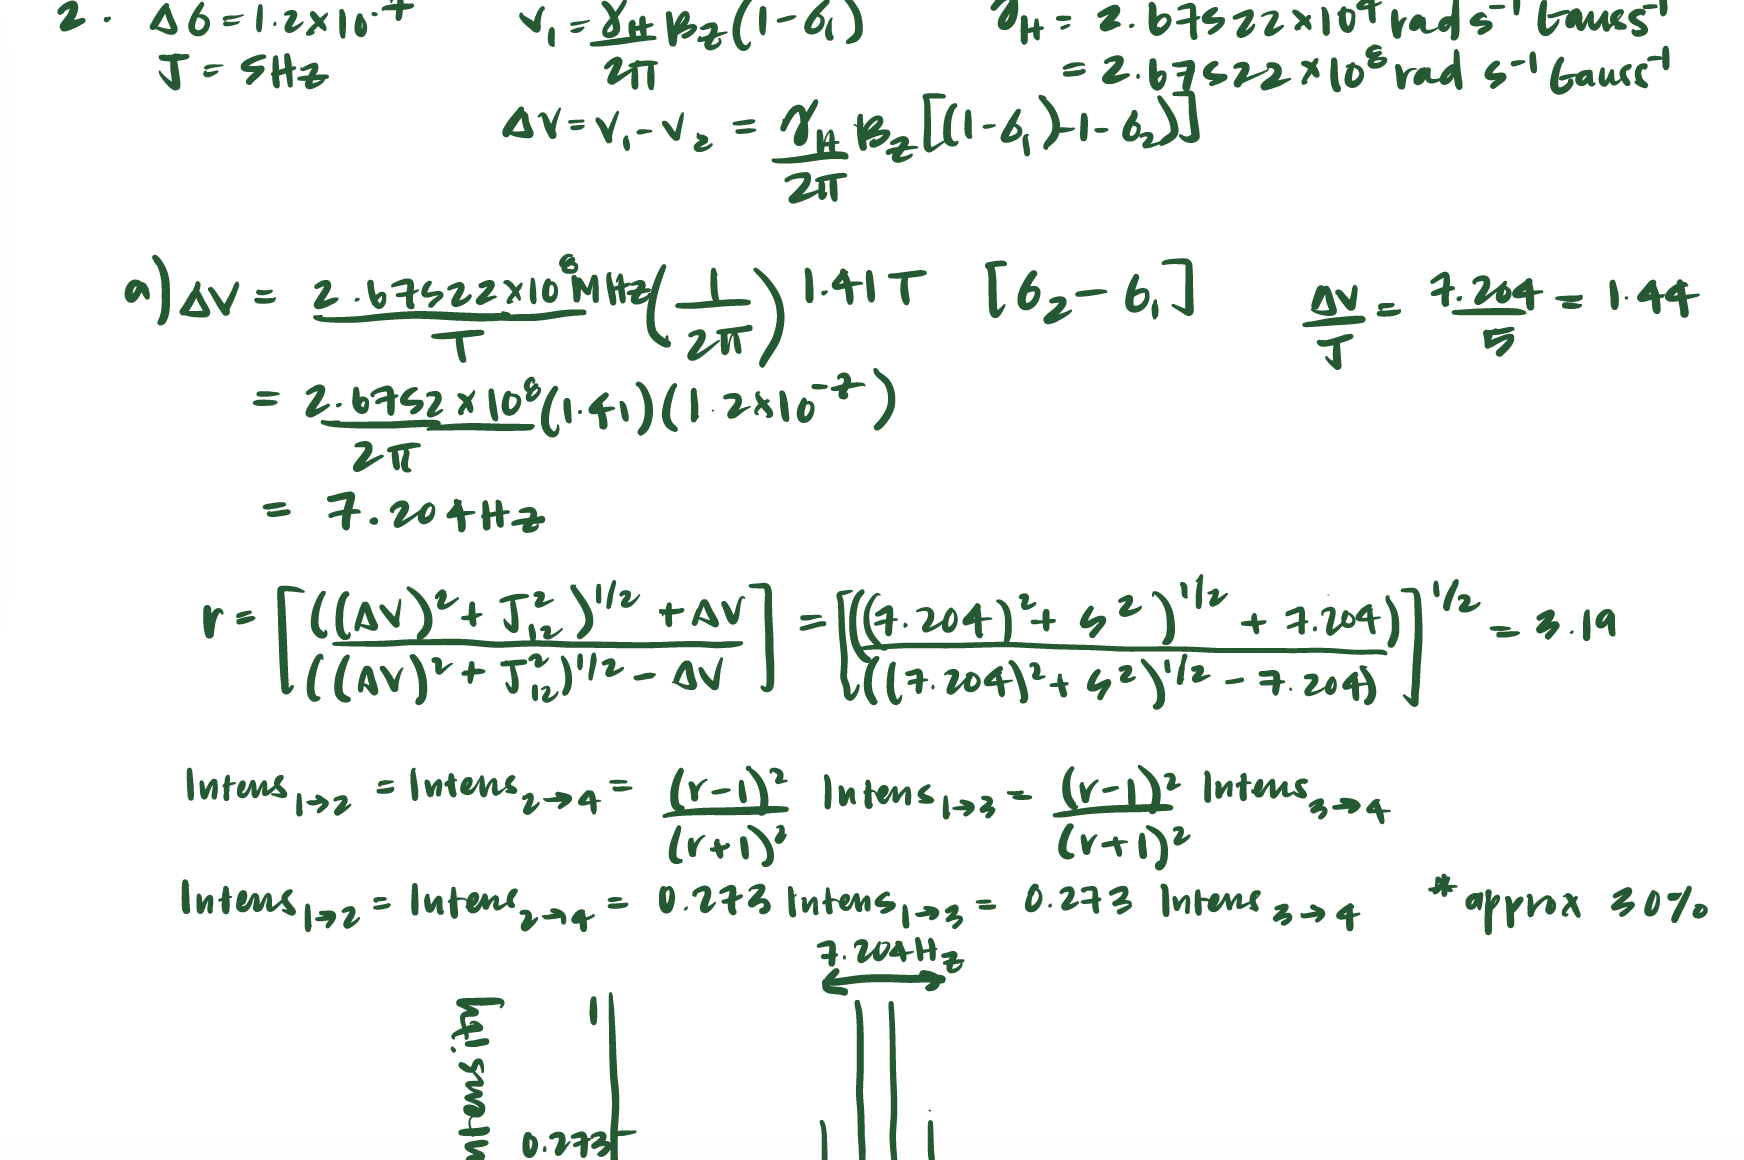 2. Δ6 = 1.2×10⁻⁷ V₁ = γH/2π Bz(1-6₁) γH = 2.67522×10⁴ rad s⁻¹ Gauss⁻¹
J = 5Hz = 2.67522×10⁸ rad s⁻¹ Gauss⁻¹
ΔV = V₁ - V₂ = γH/2π Bz[(1-6₁)-1-6₂)]
a) ΔV = 2.67522×10⁸ MHz/T (1/2π) 1.41T [6₂-6₁] ΔV/J = 7.204/5 = 1.44
= 2.6752×10⁸/2π (1.41)(1.2×10⁻⁷)
= 7.204Hz
r = [((ΔV)²+J₁₂²)^1/2 + ΔV / ((ΔV)²+J₁₂²)^1/2 - ΔV] = [((7.204)²+5²)^1/2 + 7.204) / (((7.204)²+5²)^1/2 - 7.204)]^1/2 = 3.19
Intens₁→₂ = Intens₂→₄ = (r-1)²/(r+1)² Intens₁→₃ = (r-1)²/(r+1)² Intens₃→₄
Intens₁→₂ = Intens₂→₄ = 0.273 Intens₁→₃ = 0.273 Intens₃→₄ *approx 30%
7.204Hz
1
0.273